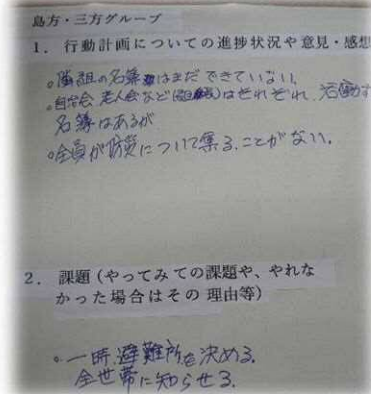 島方・三方グループ
1. 行動計画についての進捗状況や意見・感想
。隣組の名簿はまだできていない。
。自治会 老人会など()はそれぞれ、活動す
名簿はあるが
。全員が防災について集る、ことがない。
2. 課題(やってみての課題や、やれな
かった場合はその理由等)
。一時避難所を決める。
全世帯に知らせる。